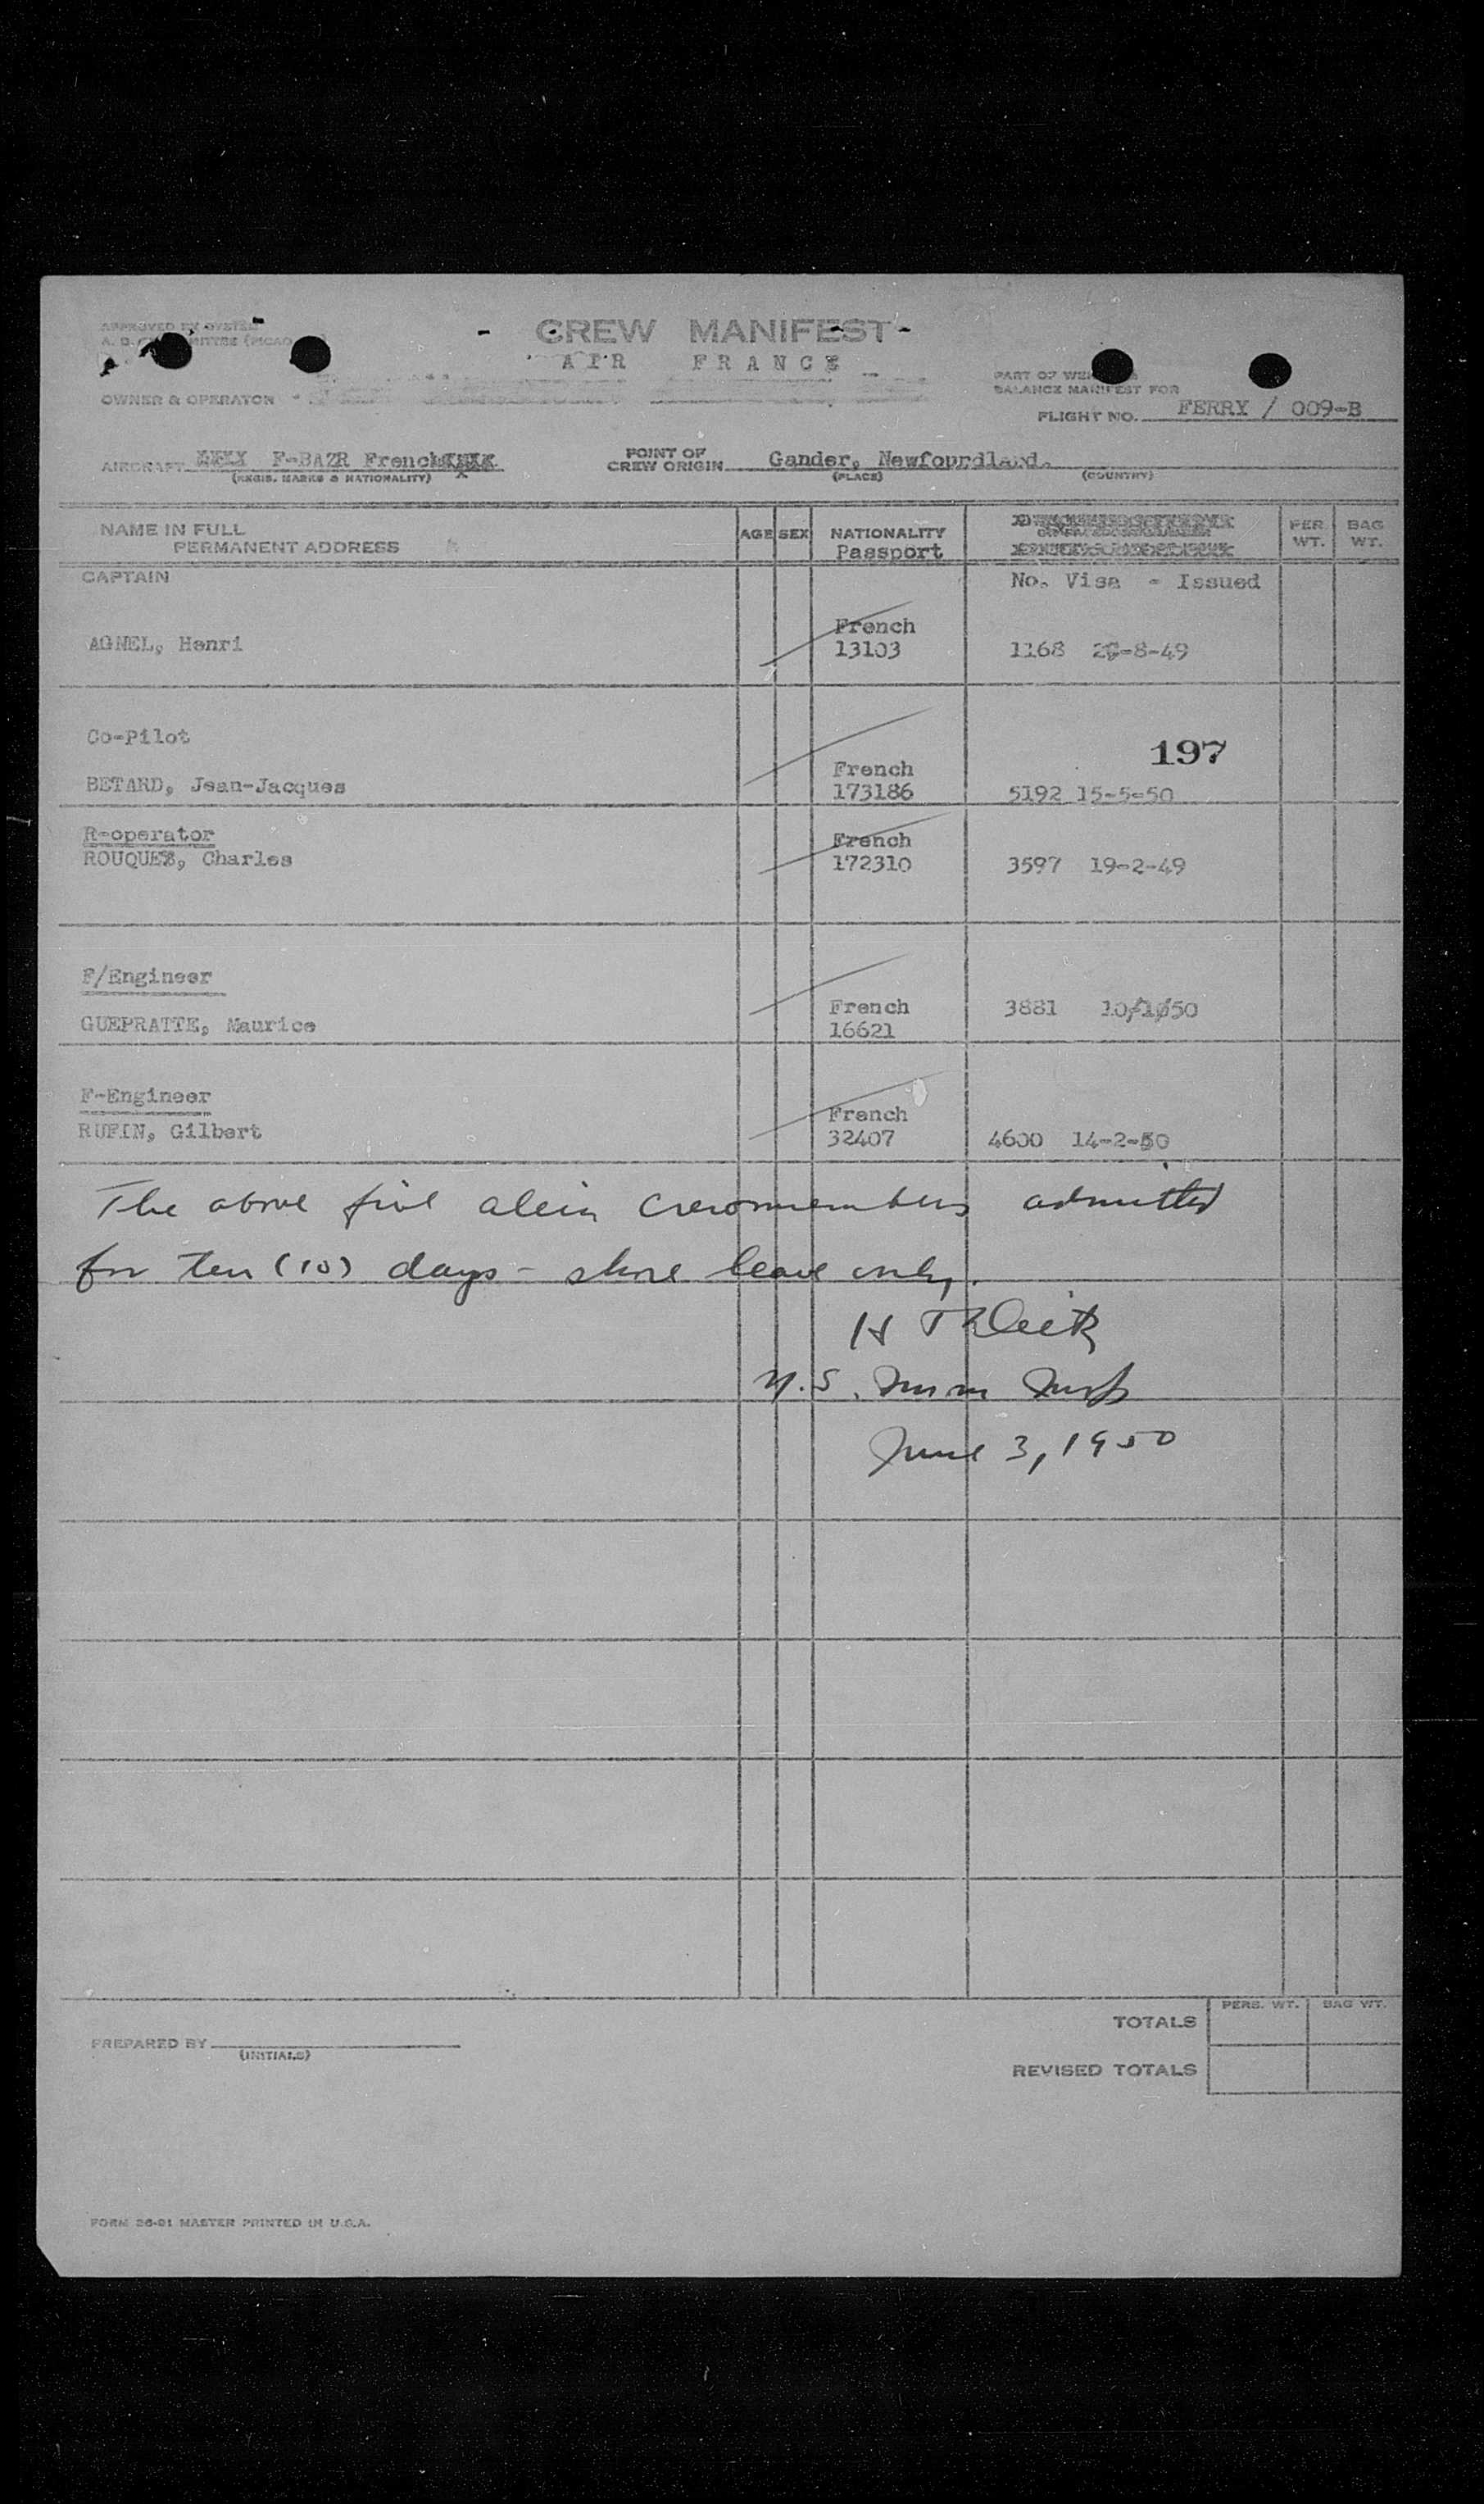 CREW MANIFEST
AIR FRANCE
OWNER & OPERATOR
PART OF
BALANCE MANIFEST FOR
FLIGHT NO. FERRY / 009-B
AIRCRAFT F-BAZR French
(REGIS. MARKS & NATIONALITY)
POINT OF
CREW ORIGIN Gander, Newfoundland.
(PLACE) (COUNTRY)
NAME IN FULL
PERMANENT ADDRESS
AGE SEX NATIONALITY
Passport
PER. WT. BAG WT.
CAPTAIN
No. Visa - Issued
AGNEL, Henri
French
13103
1168 -8-49
Co-Pilot
197
BETARD, Jean-Jacques
French
173186
5192 15-5-50
R-operator
ROUQUE, Charles
French
172310
3597 19-2-49
F/Engineer
GUEPRATTE, Maurice
French
16621
3881 10/1/50
F-Engineer
RUFIN, Gilbert
French
32407
4600 14-2-50
The above five alein crewmembers admitted
for ten (10) days - shore leave only.
U.S. Imm Insp
June 3, 1950
TOTALS
PERS. WT. BAG WT.
REVISED TOTALS
PREPARED BY
(INITIALS)
FORM 26-21 MASTER PRINTED IN U.S.A.